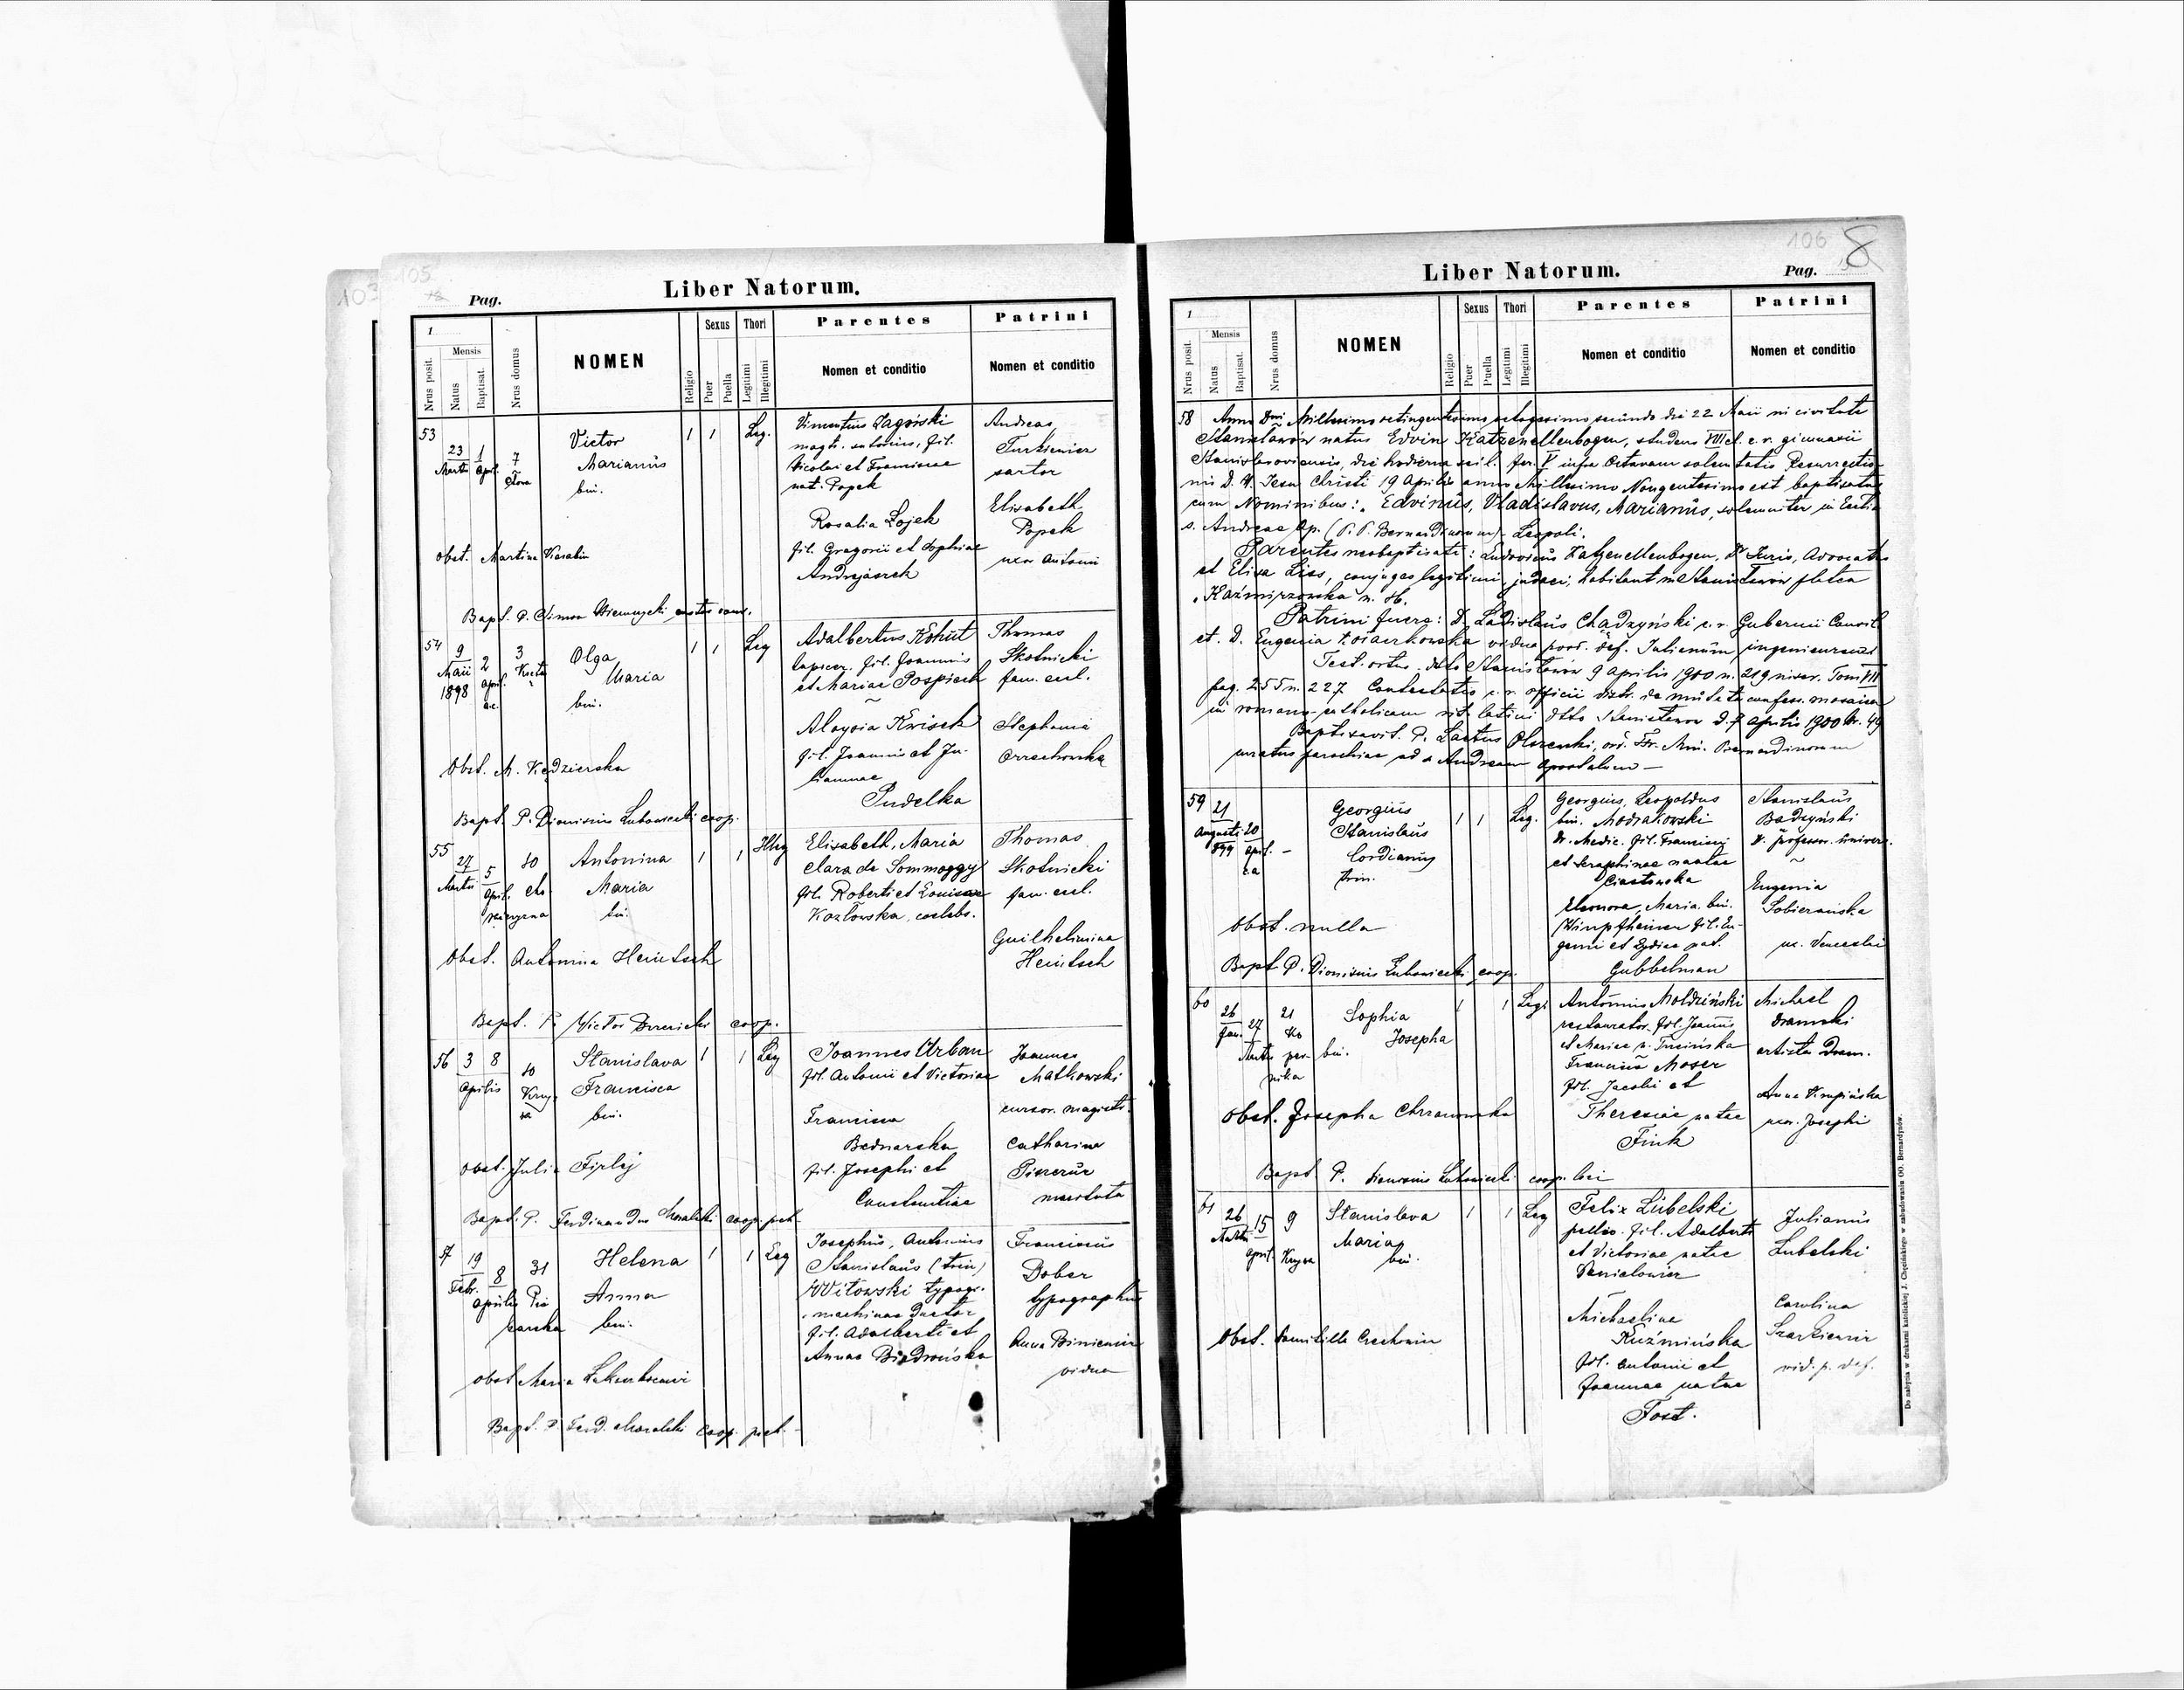 103
105
Pag.
Liber Natorum.
1
Nrus posit.
Mensis
Natus
Baptisat.
Nrus domus
NOMEN
Religio
Sexus
Puer
Puella
Thori
Legitimi
Illegitimi
Parentes
Nomen et conditio
Patrini
Nomen et conditio
53
23
Martii
1
Apr.
7
Victor
Marianus
bin.
1
1
Leg.
Vincentius Zagórski
magt. sutorius, fil.
Nicolai et Franciscae
nat. Popek
Rosalia Łojek
fil. Gregorii et Sophiae
Andrejaszek
Andreas
Turkiewicz
sartor
Elisabeth
Popek
uxor Antonii
Obst. Martina
Bapt. P. Simon
54
9
Maii
1898
2
April.
a.c.
3
Olga
Maria
bin.
1
1
Leg
Adalbertus Kohut
fil. Joannis
et Mariae Pospiech
Aloysia Kwisch
fil. Joannis et Ju-
liannae
Pudelka
Thomas
Skotnicki
fam. eccl.
Stephania
Orzechowska
Obst. M. Kędzierska
Bapt. P. Dionisius Lubowiecki coop.
55
27
Martii
5
April.
10
Antonina
Maria
bin.
1
1
Illeg
Elisabeth, Maria
Clara de Sommoggy
fil. Roberti et Louisae
Kozłowska, coelebs.
Thomas
Skotnicki
fam. eccl.
Guilhelmina
Heintsch
Obst. Antonina Heintsch
Bapt. P. Victor coop.
56
3
8
Aprilis
10
Stanislava
Francisca
bin.
1
1
Leg
Joannes Urban
fil. Antonii et Victoriae
Francisca
Bednarska
fil. Josephi et
Constantiae
Joannes
Matkowski
cursor. magistr.
Catharina
Obst. Julia Firlej
Bapt. P. Ferdinandus Moralski coop. pet.
57
19
Febr.
8
Aprilis
31
Pie
karska
Helena
Anna
bin.
1
1
Leg
Josephus, Antonius
Stanislaus (trin)
Witowski typogr.
machinae ductor
fil. Adalberti et
Annae Biedrońska
Franciscus
Dober
typographus
Anna
vidua
Obst. Maria
Bapt. P. Ferd. Moralski coop. pet.
106
8
Liber Natorum.
Pag.
1
Nrus posit.
Mensis
Natus
Baptisat.
Nrus domus
NOMEN
Religio
Sexus
Puer
Puella
Thori
Legitimi
Illegitimi
Parentes
Nomen et conditio
Patrini
Nomen et conditio
58 Anno Dni Millesimo octingentesimo octogesimo secundo die 22 Maii in civitate
Stanisławów natus Edvin Katzenellenbogen, studens VIII cl. c. r. gimnasii
Stanislaoviensis, die hodierna scil. fer. V infra Octavam solemnitatis Resurrectio-
nis D. N. Jesu Christi 19 Aprilis anno Millesimo Nongentesimo est baptisatus
cum Nominibus: Edvinus, Vladislavus, Marianus, solemniter in Eccl.
s. Andreae Ap. (P. P. Bernardinorum) Leopoli.
Parentes neobaptisati: Ludovicus Katzenellenbogen, Dr Juris, Advocatus
et Elisa Liss, conjuges legitimi, judaei, habitant in Stanisławów platea
Kaźmirzowska n.
Patrini fuere: D. Ladislaus Chądzyński c. r. Gubernii Consil.
et D. Eugenia vidua post. def. Julienum ingenieurum
Test. ortus dtto Stanisławów 9 Aprilis 1900 n. 219 Tom VII
pag. 255 n. 227. c. r. officii distr. de mutata confess. mosaica
in romano-catholicam rit. latini dtto Stanisławów d. 7 Aprilis 1900 Nr. 49
Baptisavit P. Laetus Olszenki, ord. Fr. Min. Bernardinorum
curatus parochiae ad s. Andream Apostolum
59
21
Augusti
899
20
April.
c. a
Georgius
Stanislaus
Cordianus
trin.
1
1
Leg.
Georgius, Leopoldus
bin. Modrakowski
Dr. Medic. fil. Francisci
et Seraphinae natae
Ciastowska
Eleonora, Maria bin.
Wimpfheimer fil. Eu-
genii et Lydiae nat.
Gubbelman
Stanislaus
Badzyński
Dr. professor. univers.
Eugenia
Sobierańska
ux. Venceslai
Obst. nulla
Bapt. P. Dionisius Lubowiecki coop.
60
26
Jan.
27
Martii
21
Ko
per-
nika
Sophia
Josepha
bin.
1
1
Leg.
Antonius Moldziński
restaurator, fil. Joannis
et Mariae n.
Francisca Moser
fil. Jacobi et
Theresiae natae
Fink
Michael
artista dram.
Anna Krupińska
uxor. Josephi
Obst. Josepha Chrzanowska
Bapt. P. Dionisius Lubowiecki coop. loci
61
26
Martii
15
April
9
Stanislava
Maria
bin.
1
1
Leg
Felix Lubelski
pellio. fil. Adalberti
et Victoriae natae
Danielowicz
Michaelina
Kuźmińska
fil. Antonii et
Joannae natae
Tost.
Julianus
Lubelski
Carolina
vid. p. def.
Obst. Domitilla
Do nabycia w drukarni katolickiej J. Chęcińskiego w zabudowaniu OO. Bernardynów.